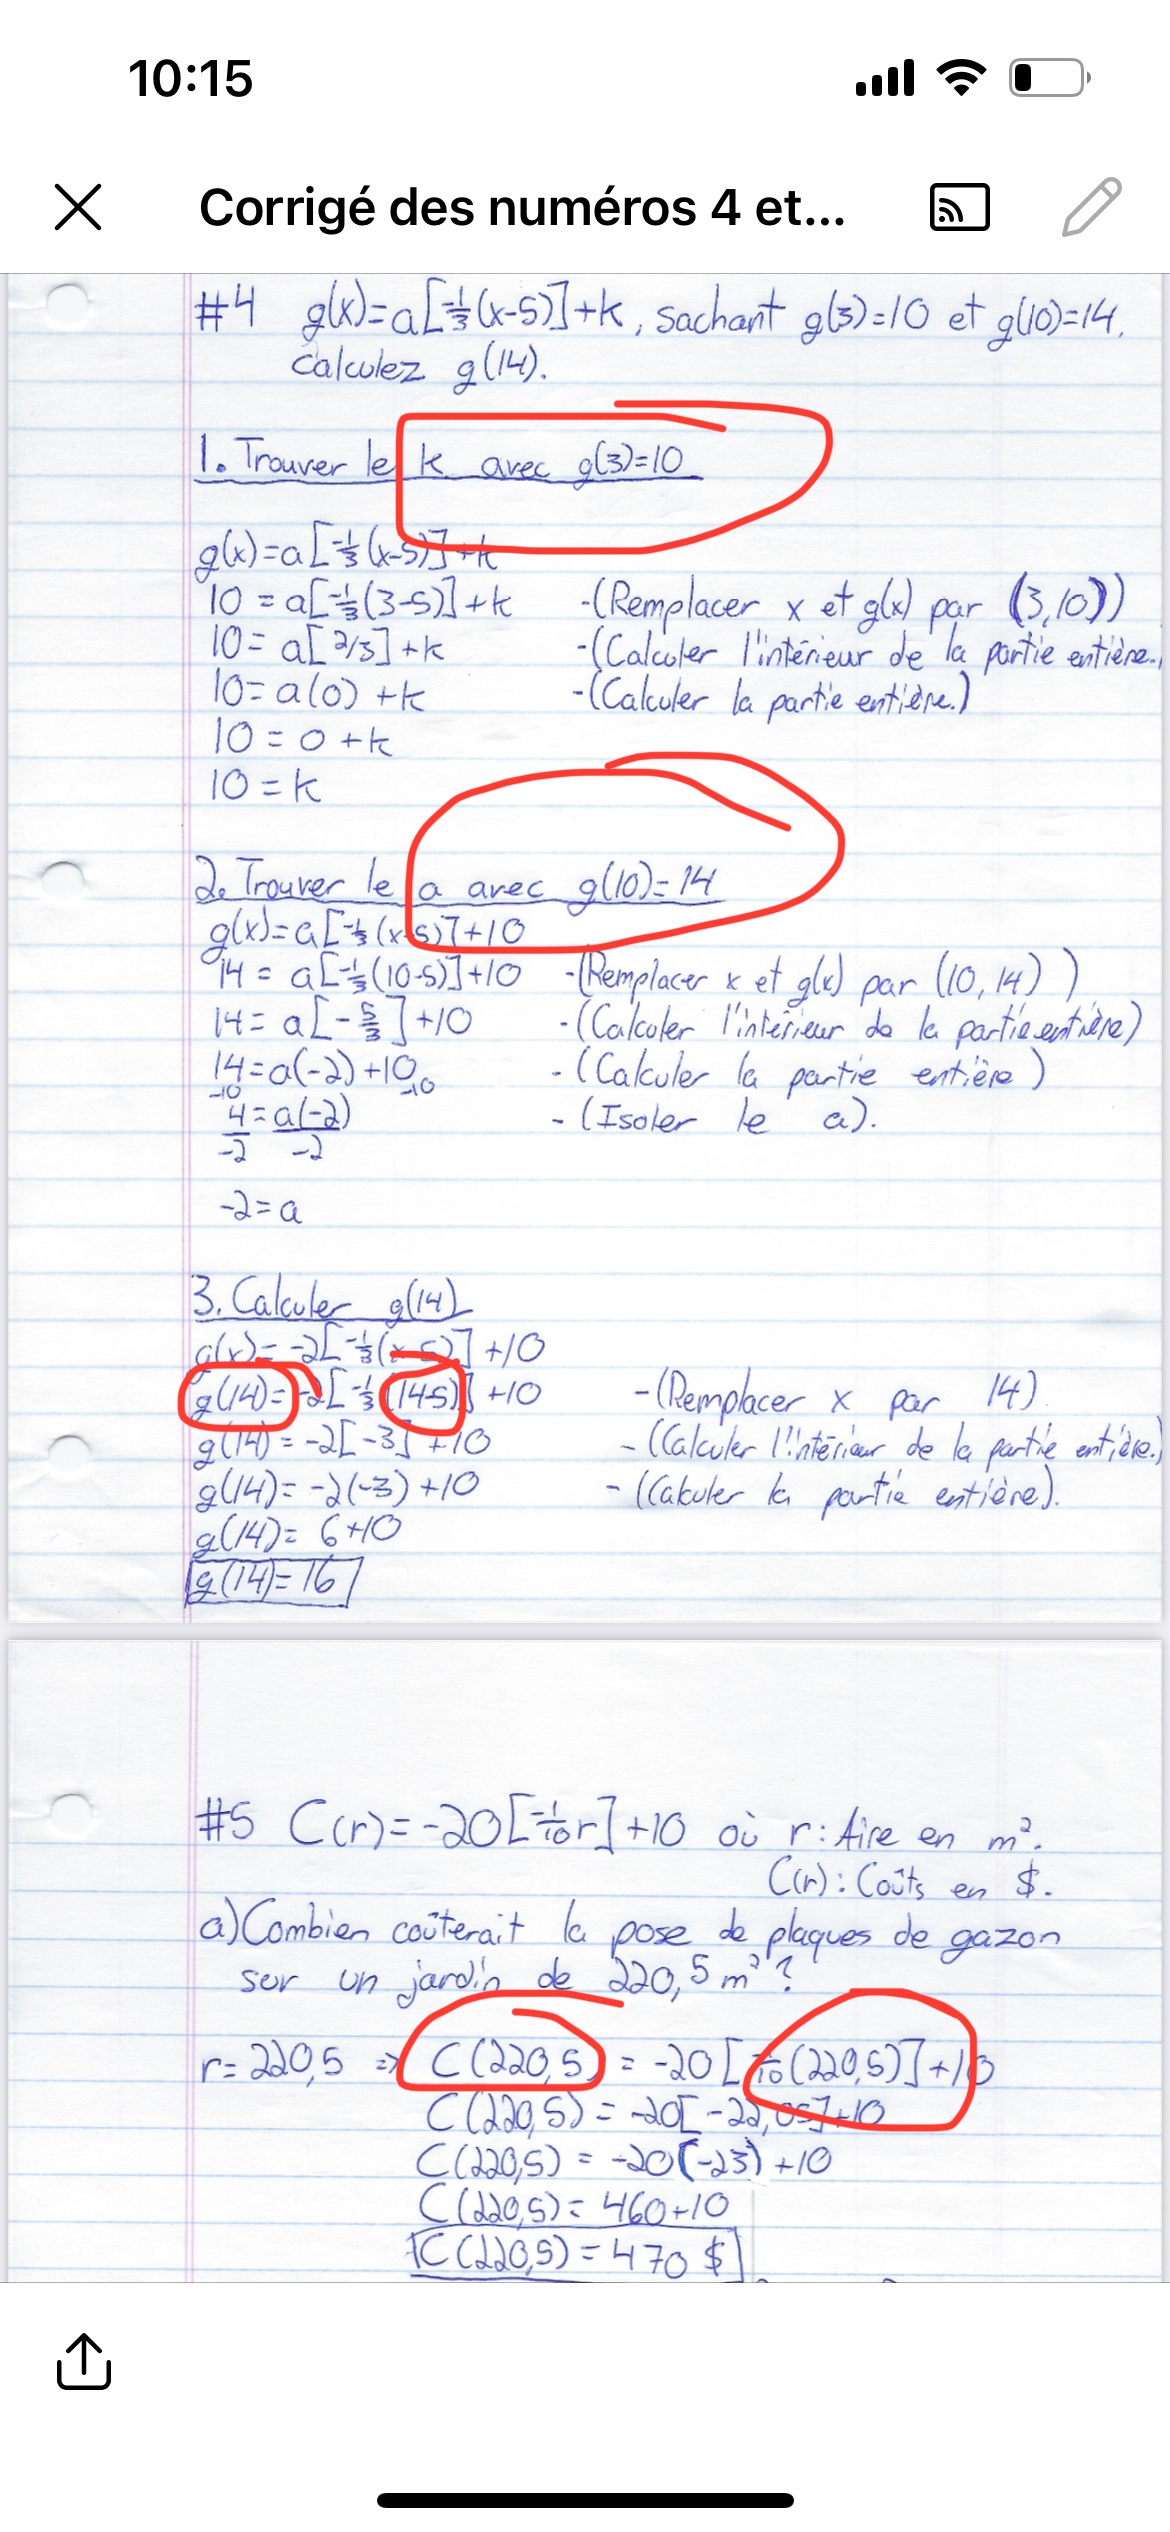 10:15
Corrigé des numéros 4 et...
#4 g(x)=a[-1/3(x-5)]+k, sachant g(3)=10 et g(10)=14.
Calculez g(14).
1. Trouver le k avec g(3)=10
g(x)=a[-1/3(x-5)]+k
10 = a[-1/3(3-5)]+k -(Remplacer x et g(x) par (3,10))
10= a[2/3]+k -(Calculer l'intérieur de la partie entière.)
10= a(0)+k -(Calculer la partie entière.)
10 = 0 +k
10 = k
2. Trouver le a avec g(10)=14
g(x)=a[-1/3(x-5)]+10
14 = a[-1/3(10-5)]+10 -(Remplacer x et g(x) par (10,14))
14= a[-5/3]+10 -(Calculer l'intérieur de la partie entière)
14=a(-2)+10 -(Calculer la partie entière)
-10 -10
4=a(-2) -(Isoler le a).
-2 -2
-2=a
3. Calculer g(14)
g(x)= -2[-1/3(x-5)] +10
g(14)= -2[-1/3(14-5)] +10 -(Remplacer x par 14)
g(14) = -2[-3] +10 -(Calculer l'intérieur de la partie entière.)
g(14)= -2(-3) +10 -(Calculer la partie entière).
g(14)= 6+10
g(14)=16
#5 C(r)=-20[-1/10r]+10 où r: Aire en m².
C(r): Coûts en $.
a) Combien coûterait la pose de plaques de gazon
sur un jardin de 220,5 m²?
r= 220,5 => C(220,5) = -20[-1/10(220,5)]+10
C(220,5) = -20[-22,05]+10
C(220,5) = -20(-23) +10
C(220,5) = 460+10
C(220,5) = 470 $